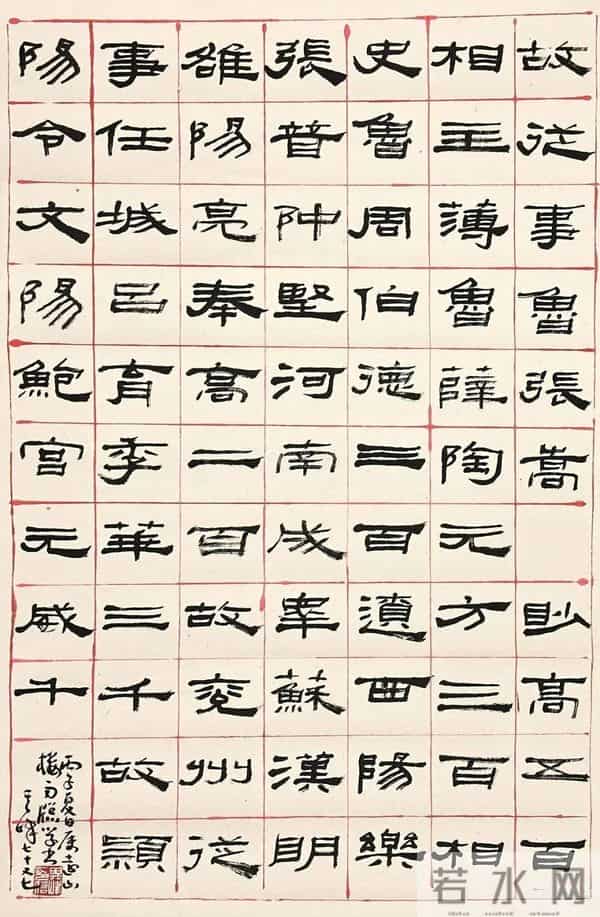 故從事魯張嵩眇高五百
相主薄魯薛陶元方三百相
史魯周伯德三百遼西陽樂
張普仲堅河南成皋蘇漢明
雒陽亮奉高二百故兖州從
事任城吕育季華三千故潁
陽令文陽鮑宮元威千
丙子夏日
七十又七
若水网